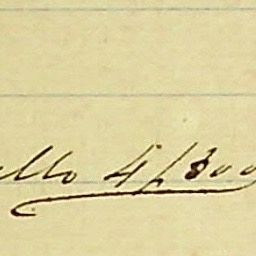 ello 4/300